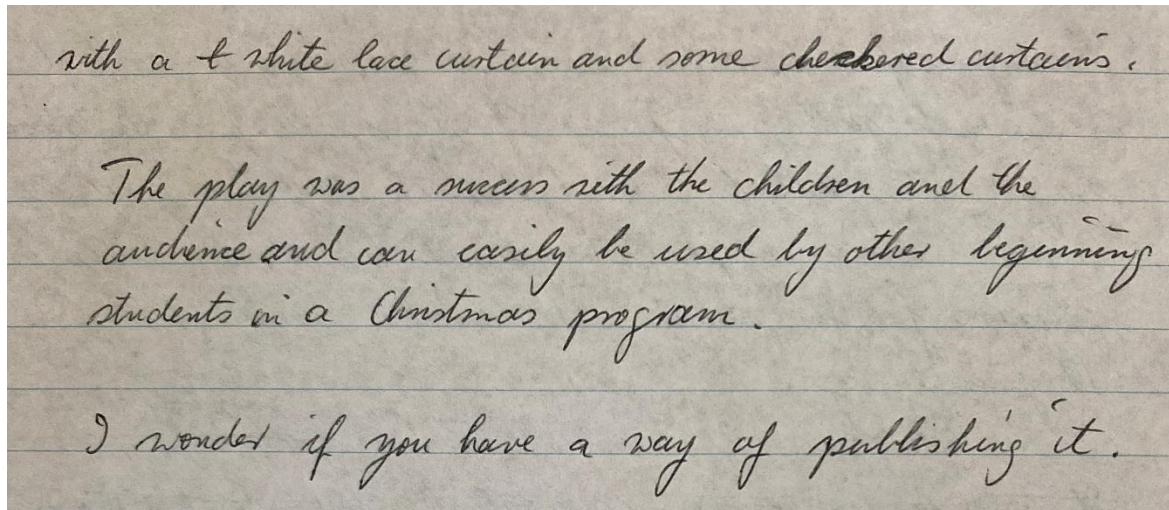 with a t white lace curtain and some checkered curtains.
The play was a success with the children and the
audience and can easily be used by other beginning
students in a Christmas program.
I wonder if you have a way of publishing it.